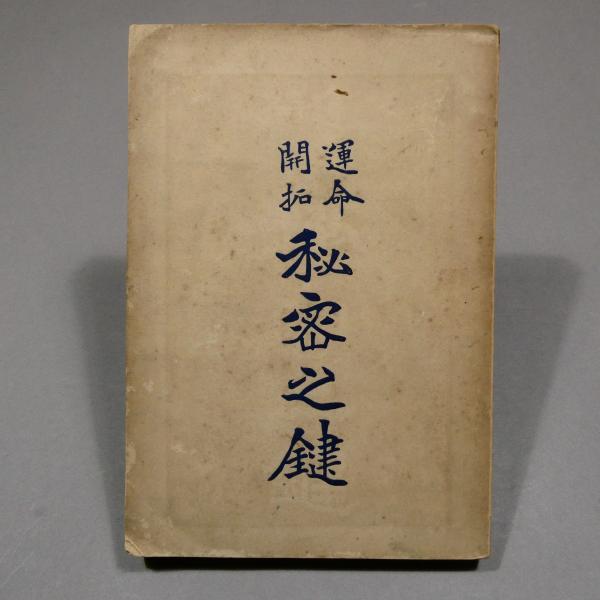 運命
開拓
秘密之鍵